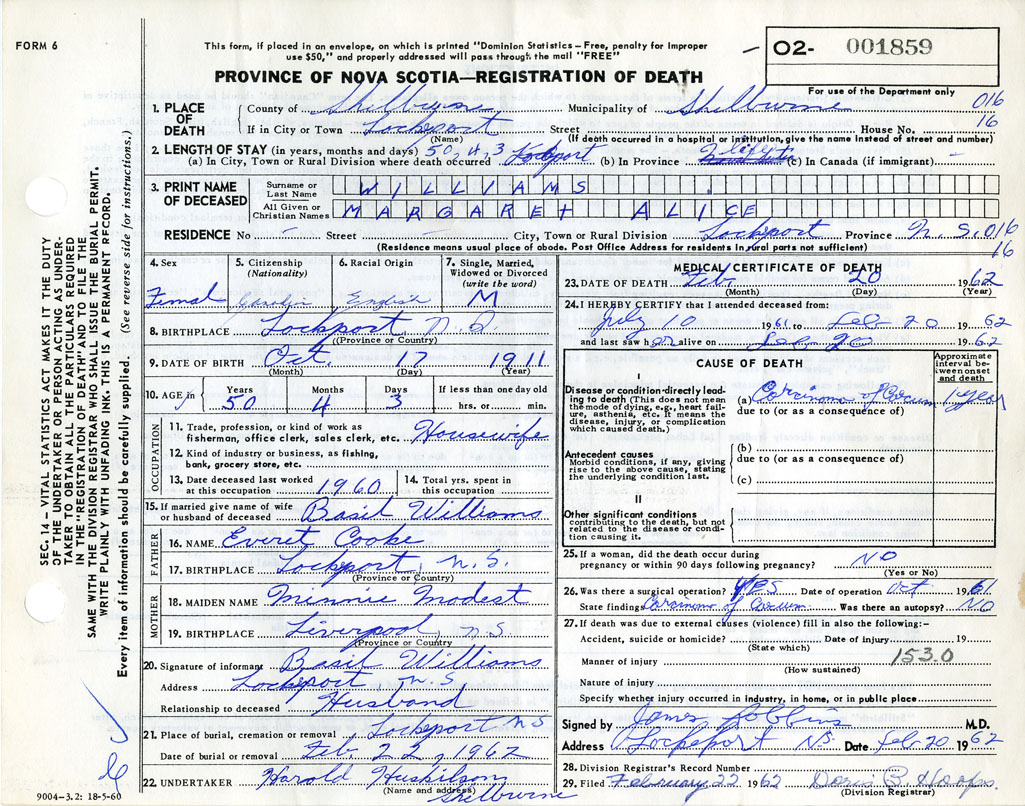 FORM 6
This form, if placed in an envelope, on which is printed "Dominion Statistics – Free, penalty for improper
use $50," and properly addressed will pass through the mail "FREE"
PROVINCE OF NOVA SCOTIA—REGISTRATION OF DEATH
02- 001859
For use of the Department only
016
16
1. PLACE OF DEATH
County of Shelburne Municipality of Shelburne
If in City or Town Lockeport Street House No.
(Name) (If death occurred in a hospital or institution, give the name instead of street and number)
2. LENGTH OF STAY (in years, months and days) 50, 4, 3 Lockeport life
(a) In City, Town or Rural Division where death occurred (b) In Province (c) In Canada (if immigrant)
3. PRINT NAME OF DECEASED
Surname or Last Name WILLIAMS
All Given or Christian Names MARGARET ALICE
RESIDENCE No – Street City, Town or Rural Division Lockeport Province N. S. 016
(Residence means usual place of abode. Post Office Address for residents in rural parts not sufficient) 16
4. Sex
Femal
5. Citizenship
(Nationality)
6. Racial Origin
English
7. Single, Married,
Widowed or Divorced
(write the word)
M
8. BIRTHPLACE Lockport N.S.
(Province or Country)
9. DATE OF BIRTH Oct. 17 1911
(Month) (Day) (Year)
10. AGE in
Years 50
Months 4
Days 3
If less than one day old
hrs. or min.
OCCUPATION
11. Trade, profession, or kind of work as
fisherman, office clerk, sales clerk, etc. Housewife
12. Kind of industry or business, as fishing,
bank, grocery store, etc.
13. Date deceased last worked
at this occupation 1960
14. Total yrs. spent in
this occupation
15. If married give name of wife
or husband of deceased Basil Williams
FATHER
16. NAME Everet Cooke
17. BIRTHPLACE Lockeport, N.S.
(Province or Country)
MOTHER
18. MAIDEN NAME Minnie Modest
19. BIRTHPLACE Liverpool, NS
(Province or Country)
20. Signature of informant Basil Williams
Address Lockeport N.S
Relationship to deceased Husband
21. Place of burial, cremation or removal Lockeport NS
Date of burial or removal Feb 22, 1962
22. UNDERTAKER Harold Huskilson
(Name and address)
Shelburne
MEDICAL CERTIFICATE OF DEATH
23. DATE OF DEATH Feb. 20 1962
(Month) (Day) (Year)
24. I HEREBY CERTIFY that I attended deceased from:
July 10 1961 to Feb 20 1962
and last saw her alive on Feb 20 1962
CAUSE OF DEATH
Approximate
interval between
onset
and death
I
Disease or condition directly leading
to death (This does not mean
the mode of dying, e.g., heart failure,
asthenia, etc. It means the
disease, injury, or complication
which caused death.)
(a) Carcinoma of Cecum 1 year
due to (or as a consequence of)
Antecedent causes
Morbid conditions, if any, giving
rise to the above cause, stating
the underlying condition last.
(b)
due to (or as a consequence of)
(c)
II
Other significant conditions
contributing to the death, but not
related to the disease or condition
causing it.
25. If a woman, did the death occur during
pregnancy or within 90 days following pregnancy? NO
(Yes or No)
26. Was there a surgical operation? yes Date of operation Oct 1961
State findings Carcinoma of Cecum Was there an autopsy? NO
27. If death was due to external causes (violence) fill in also the following:-
Accident, suicide or homicide? Date of injury 19
(State which)
Manner of injury 153.0
(How sustained)
Nature of injury
Specify whether injury occurred in industry, in home, or in public place
Signed by James Robbins M.D.
Address Lockeport NS Date Feb 20 1962
28. Division Registrar's Record Number
29. Filed February 22 1962 Doris B. Hoops.
(Division Registrar)
9004-3.2: 18-5-60
SEC. 14 – VITAL STATISTICS ACT MAKES IT THE DUTY
OF THE UNDERTAKER OR PERSON ACTING AS UNDERTAKER
TO OBTAIN ALL THE PARTICULARS REQUIRED
IN THE "REGISTRATION OF DEATH" AND TO FILE THE
SAME WITH THE DIVISION REGISTRAR WHO SHALL ISSUE THE BURIAL PERMIT.
WRITE PLAINLY WITH UNFADING INK. THIS IS A PERMANENT RECORD.
Every item of information should be carefully supplied. (See reverse side for instructions.)